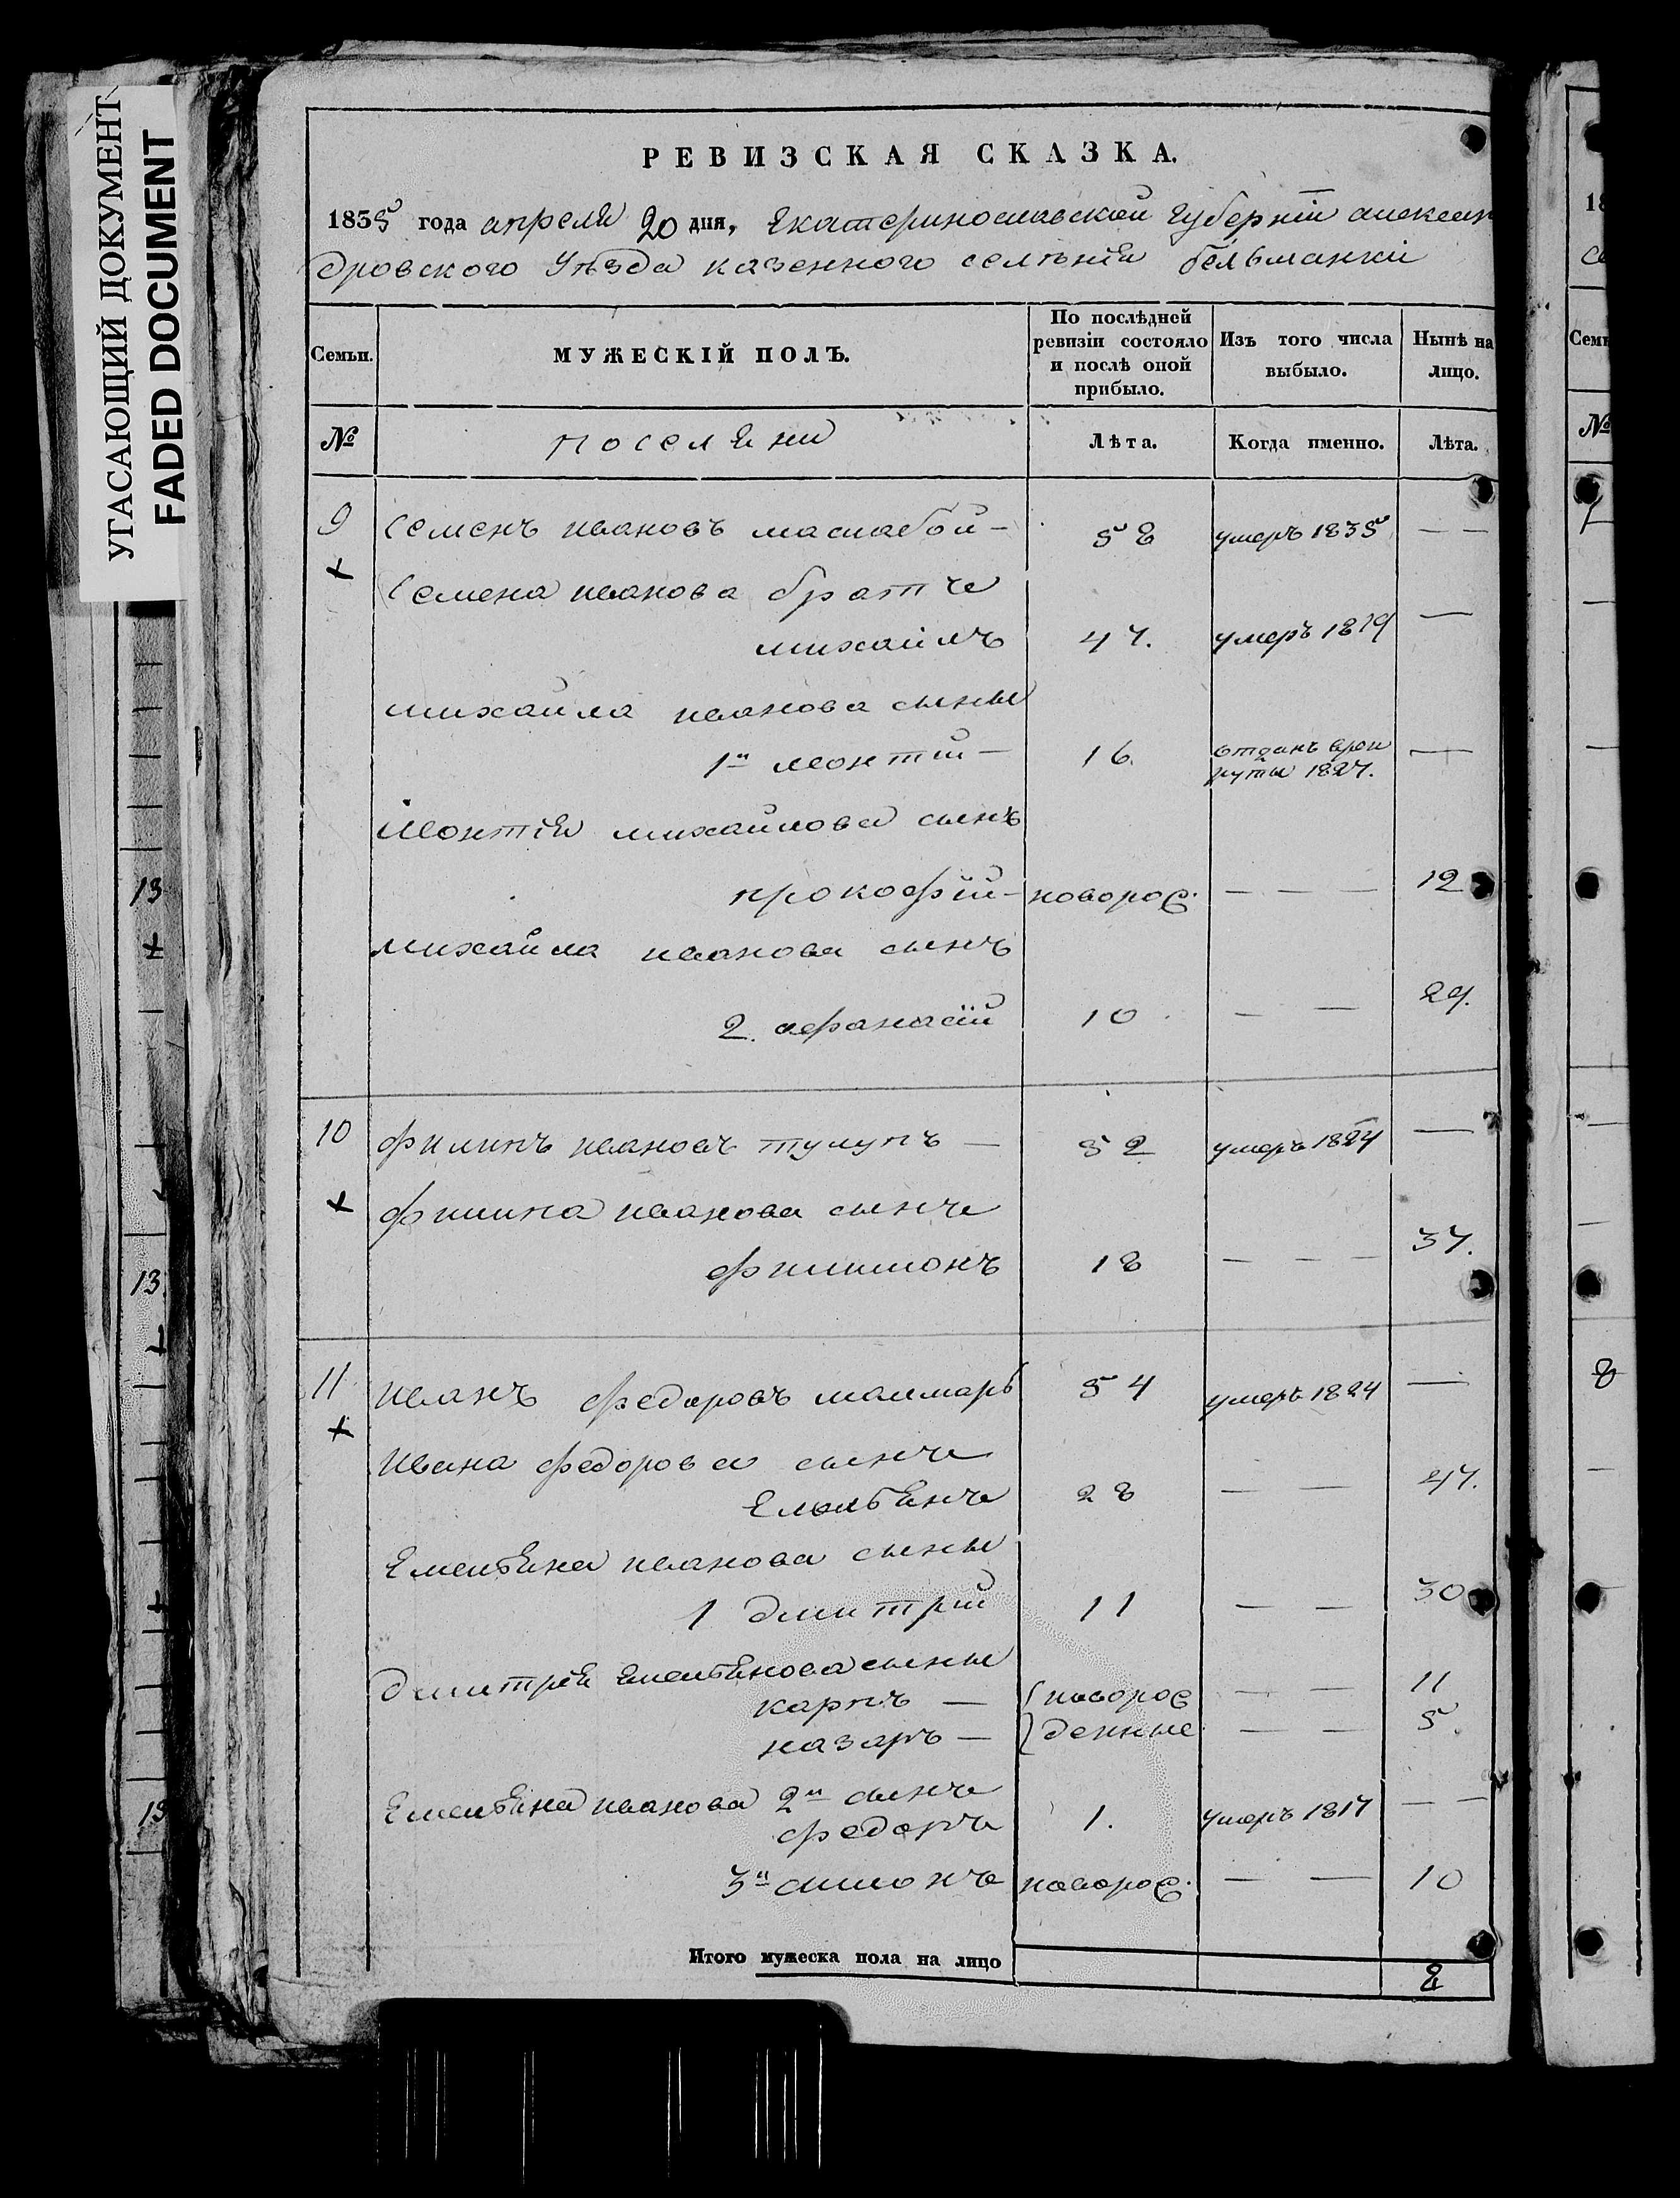 УГАСАЮЩИЙ ДОКУМЕНТ
FADED DOCUMENT
РЕВИЗСКАЯ СКАЗКА.
1835 года апреля 20 дня, Екатеринославской Губерніи алексан
дровского Уѣзда казенного селѣнія бельманки
Семьи.
МУЖЕСКІЙ ПОЛЪ.
По послѣдней ревизіи состояло и послѣ оной прибыло.
Изъ того числа выбыло.
Нынѣ на лицо.
№
поселяни
Лѣта.
Когда именно.
Лѣта.
9 Семенъ ивановъ маслабой — 58 умеръ 1835 — —
Семена иванова братъ
михаилъ 47. умеръ 1819 —
михаила иванова сыны
1й леонтій — 16. отданъ врек
руты 1827. —
леонтія михайлова сынъ
прокофій — новорож. — — — 12
михаила иванова сынъ
2. афанасій 10 — — 29.
10 филипъ ивановъ тулупъ — 52 умеръ 1824 —
филипа иванова сынъ
филимонъ 18 — — — 37.
11 иванъ федоровъ малмаръ 54 умеръ 1824 —
ивана федорова сынъ
Емельянъ 28 — — 47.
Емельяна иванова сыны
1 дмитрій 11 — — 30
дмитрія Емельянова сыны
карпъ — новорож — — 11
назаръ — денные — — 5.
Емельяна иванова 2й сынъ
федоръ 1. умеръ 1817 — —
3й симонъ новорож. — — 10
Итого мужеска пола на лицо 8
13
13
13
18
Семьи
№
8